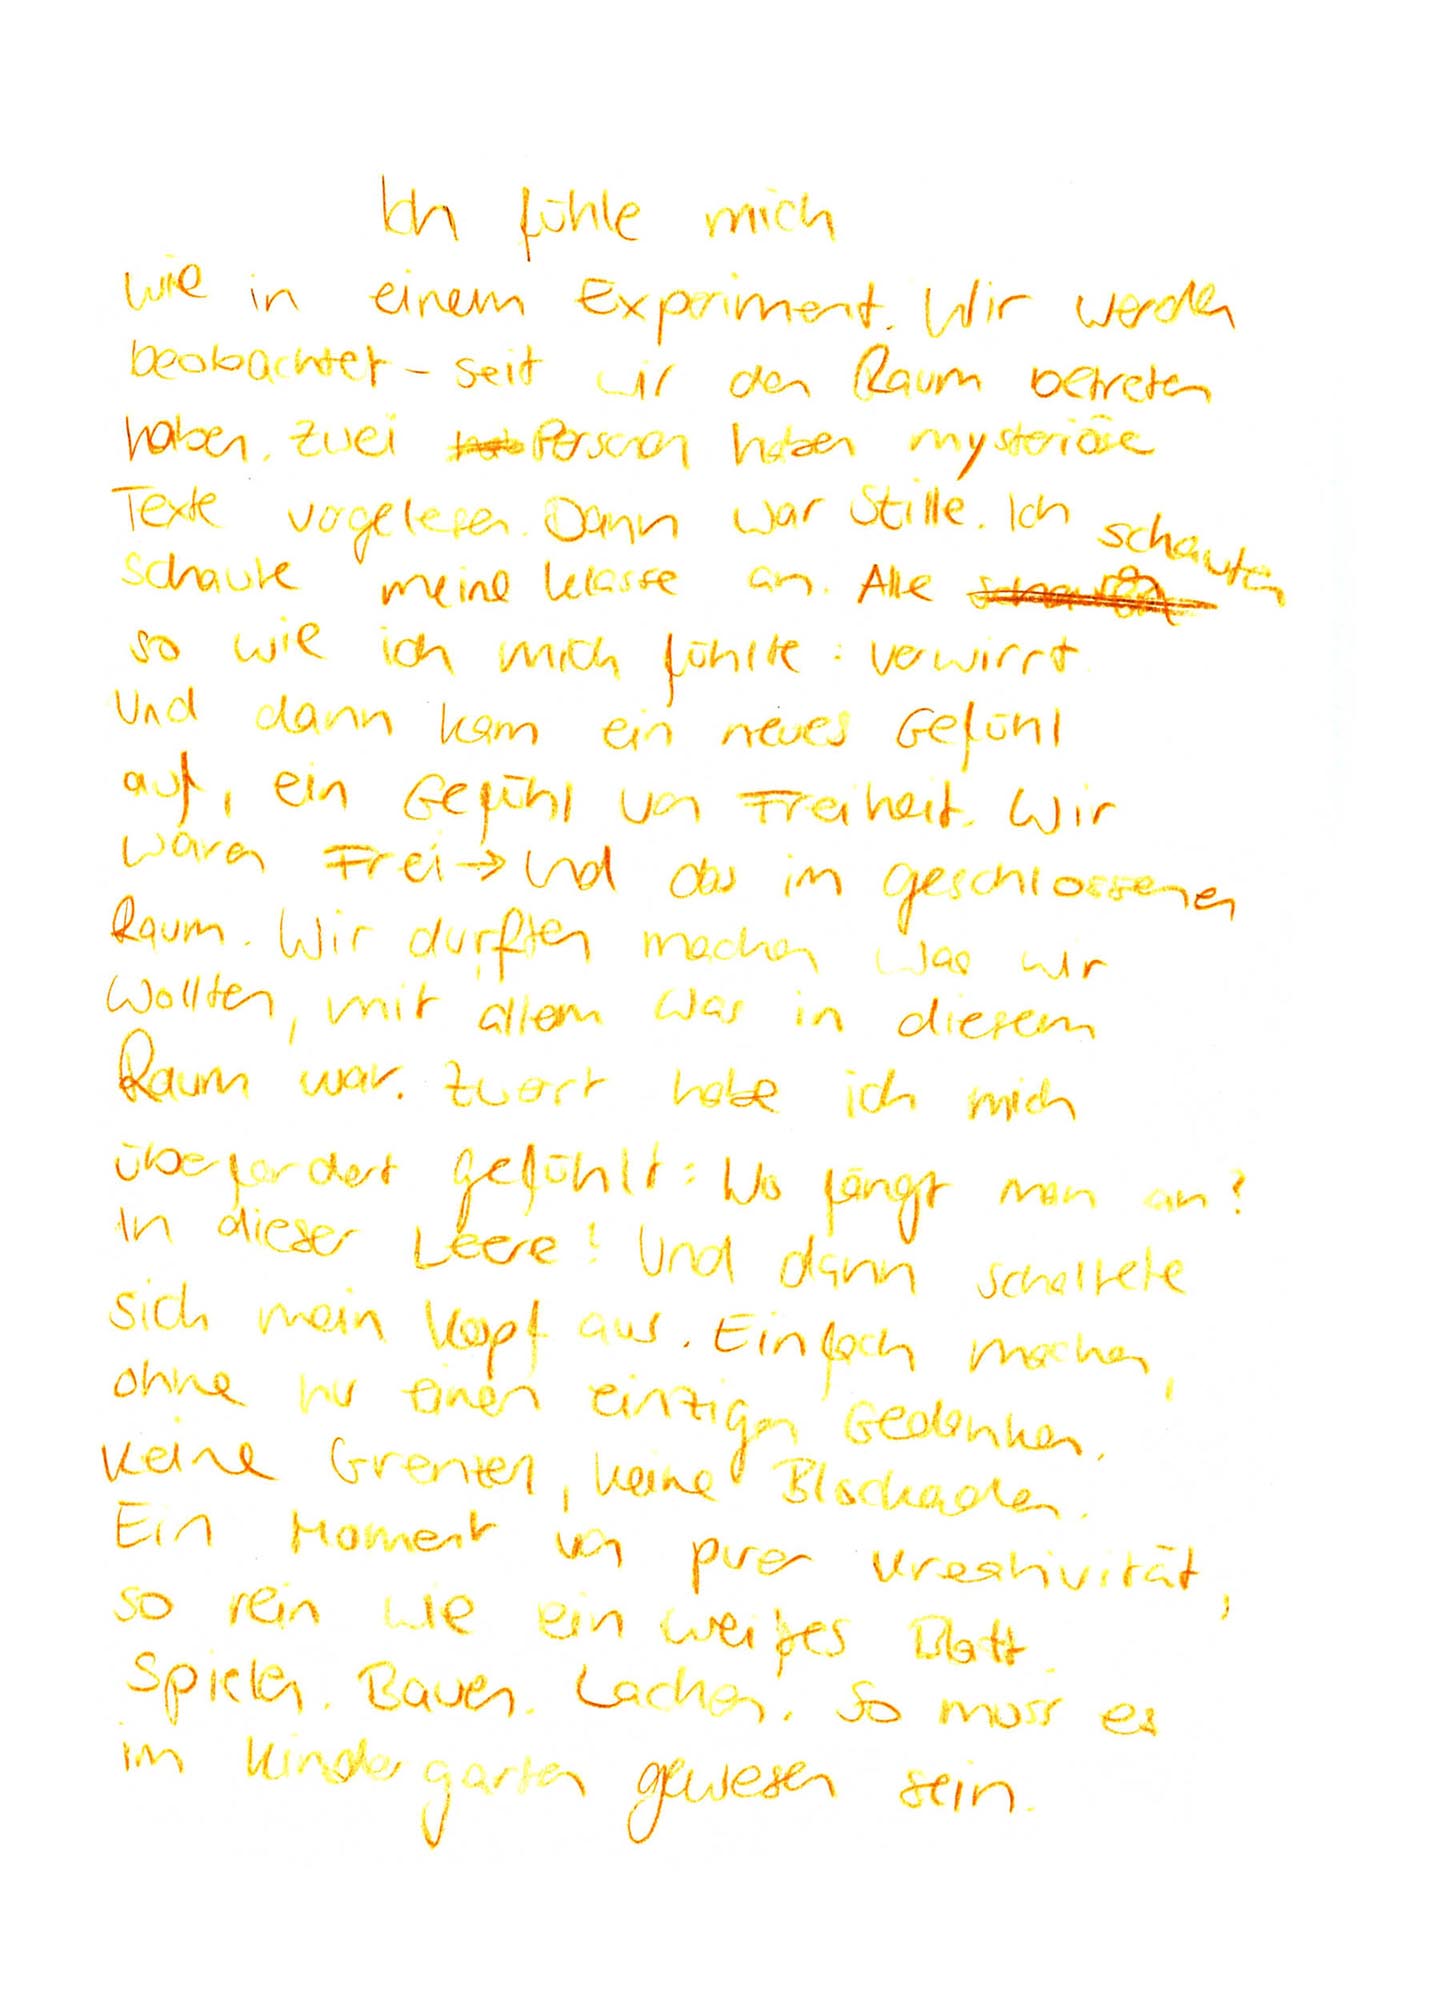 Ich fühle mich
wie in einem Experiment. Wir werden
beobachtet – seit wir den Raum betreten
haben. Zwei Personen haben mysteriöse
Texte vorgelesen. Dann war Stille. Ich
schaute meine Klasse an. Alle schauten
so wie ich mich fühlte: verwirrt.
Und dann kam ein neues Gefühl
auf, ein Gefühl von Freiheit. Wir
waren Frei → Und das im geschlossenen
Raum. Wir durften machen was wir
wollten, mit allem was in diesem
Raum war. Zuerst habe ich mich
überfordert gefühlt: Wo fängt man an?
In dieser Leere! Und dann schaltete
sich mein Kopf aus. Einfach machen,
ohne nur einen einzigen Gedanken.
Keine Grenzen, keine Blockaden.
Ein Moment von purer Kreativität,
so rein wie ein weißes Blatt.
Spielen. Bauen. Lachen. So muss es
im Kindergarten gewesen sein.